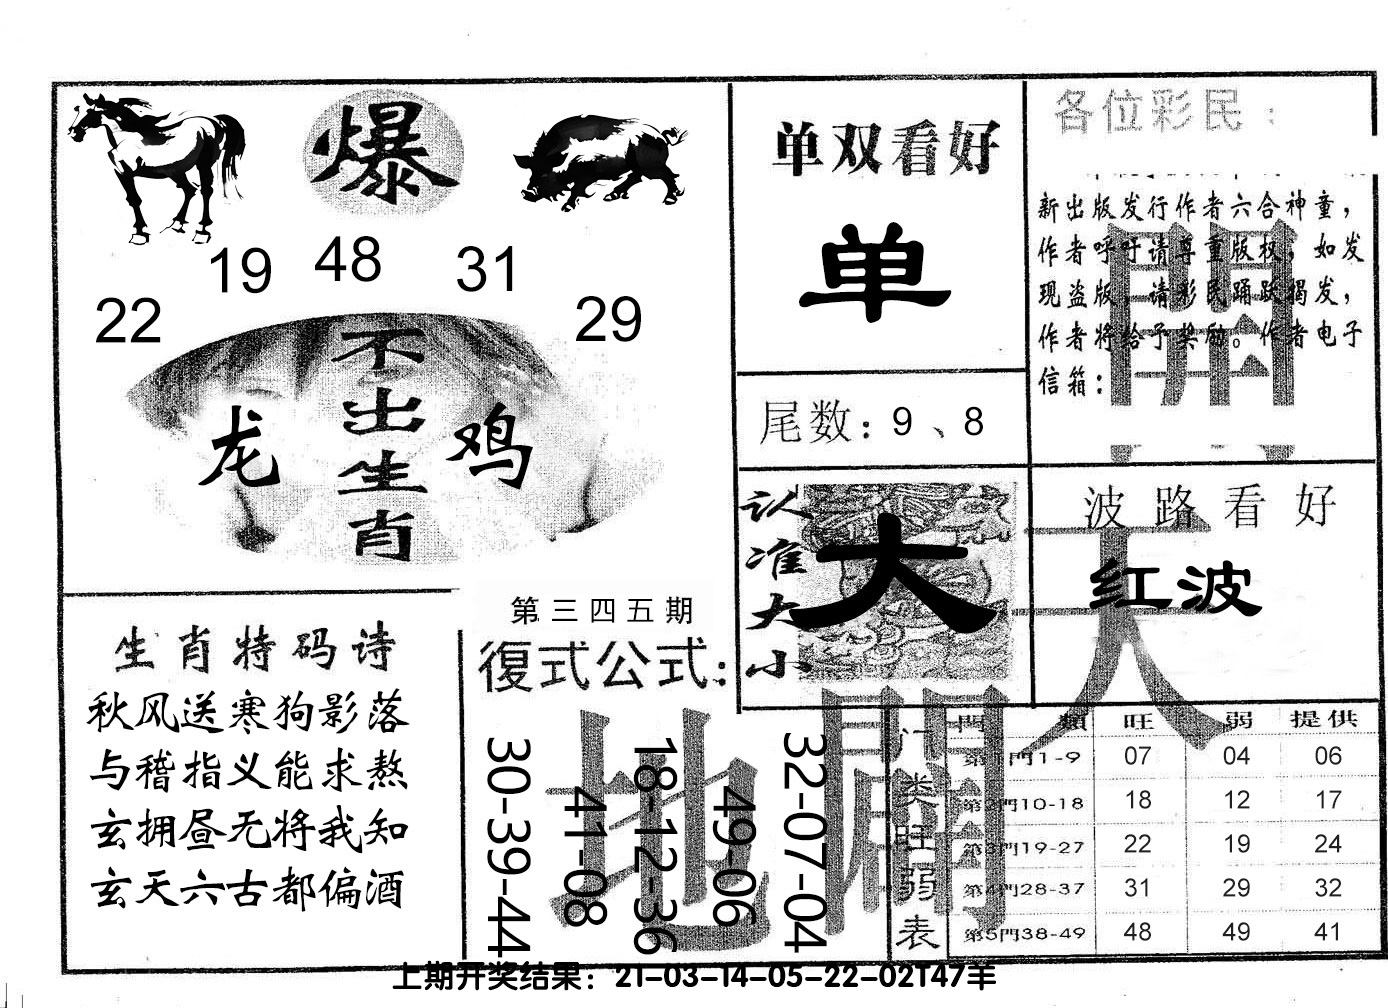 爆
19 48 31
22 29
不出生肖
龙 鸡
生肖特码诗
秋风送寒狗影落
与稽指义能求熬
玄拥昼无将我知
玄天六古都偏酒
第三四五期
復式公式:
30-39-44
41-08
18-12-36
49-06
32-07-04
单双看好
单
尾数: 9、8
认准大小
大
各位彩民:
新出版发行作者六合神童,
作者呼吁请尊重版权,如发
现盗版,请彩民踊跃揭发,
作者将给予奖励。作者电子
信箱:
波路看好
红波
天
地
門类旺弱表
門類 旺 弱 提供
第1門1-9 07 04 06
第2門10-18 18 12 17
第3門19-27 22 19 24
第4門28-37 31 29 32
第5門38-49 48 49 41
上期开奖结果：21-03-14-05-22-02T47羊